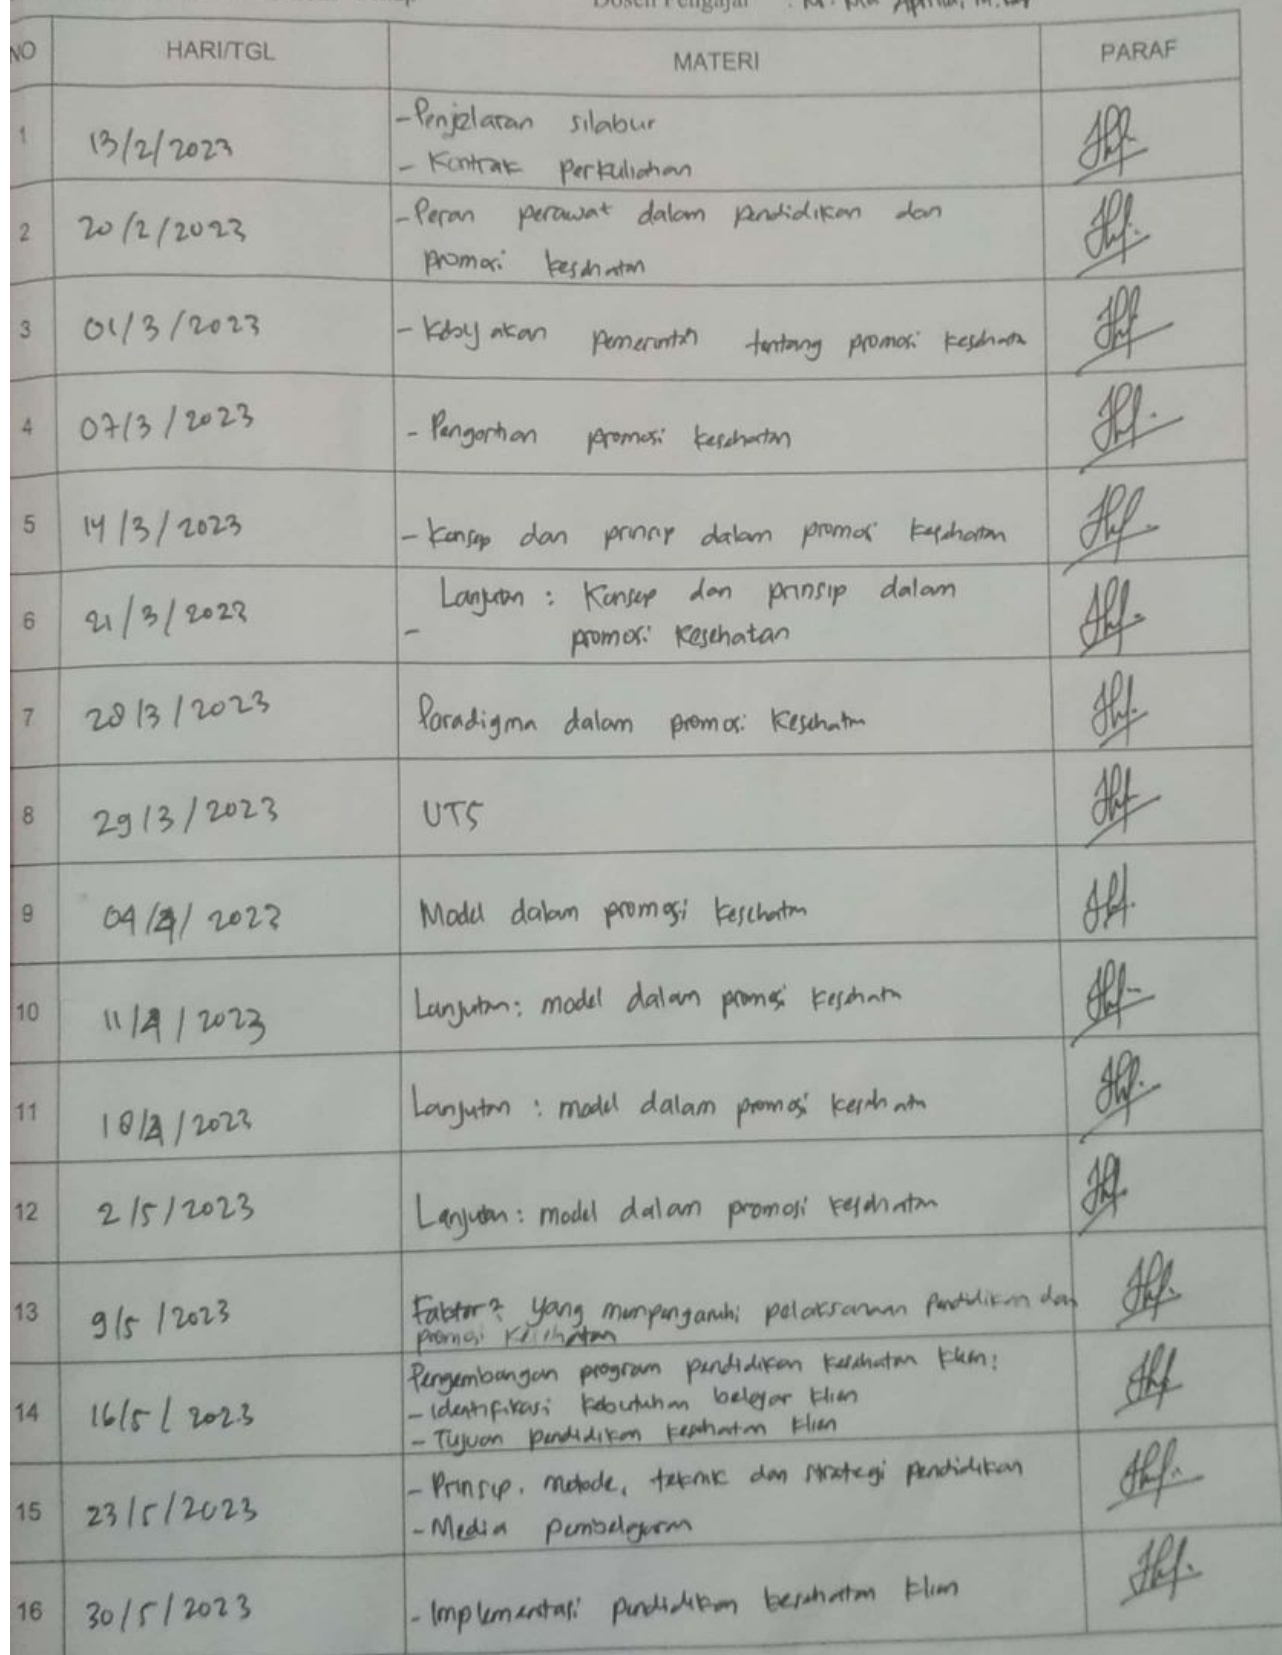 Dosen Pengajar :
NO HARI/TGL MATERI PARAF
1 13/2/2023 - Penjelasan silabus
- Kontrak perkuliahan
2 20/2/2023 - Peran perawat dalam pendidikan dan
promosi kesehatan
3 01/3/2023 - Kebijakan pemerintah tentang promosi kesehatan
4 07/3/2023 - promosi kesehatan
5 14/3/2023 - Konsep dan prinsip dalam promosi kesehatan
6 21/3/2023 - Lanjutan : Konsep dan prinsip dalam
promosi kesehatan
7 28/3/2023 Paradigma dalam promosi kesehatan
8 29/3/2023 UTS
9 04/4/2023 Model dalam promosi kesehatan
10 11/4/2023 Lanjutan : model dalam promosi kesehatan
11 18/4/2023 Lanjutan : model dalam promosi kesehatan
12 2/5/2023 Lanjutan : model dalam promosi kesehatan
13 9/5/2023 Faktor2 yang mempengaruhi pelaksanaan pendidikan dan
promosi kesehatan
14 16/5/2023 Pengembangan program pendidikan kesehatan klien :
- Identifikasi kebutuhan belajar klien
- Tujuan pendidikan kesehatan klien
15 23/5/2023 - Prinsip, metode, teknik dan strategi pendidikan
- Media pembelajaran
16 30/5/2023 - Implementasi pendidikan kesehatan klien